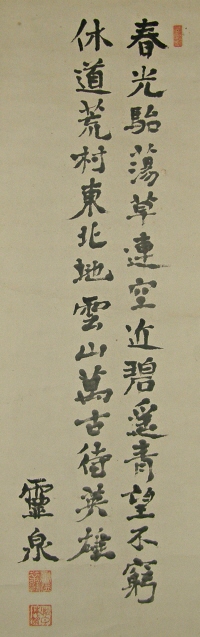 春光駘蕩草連空近碧遥青望不窮
休道荒村東北地雲山萬古待英雄
靈泉